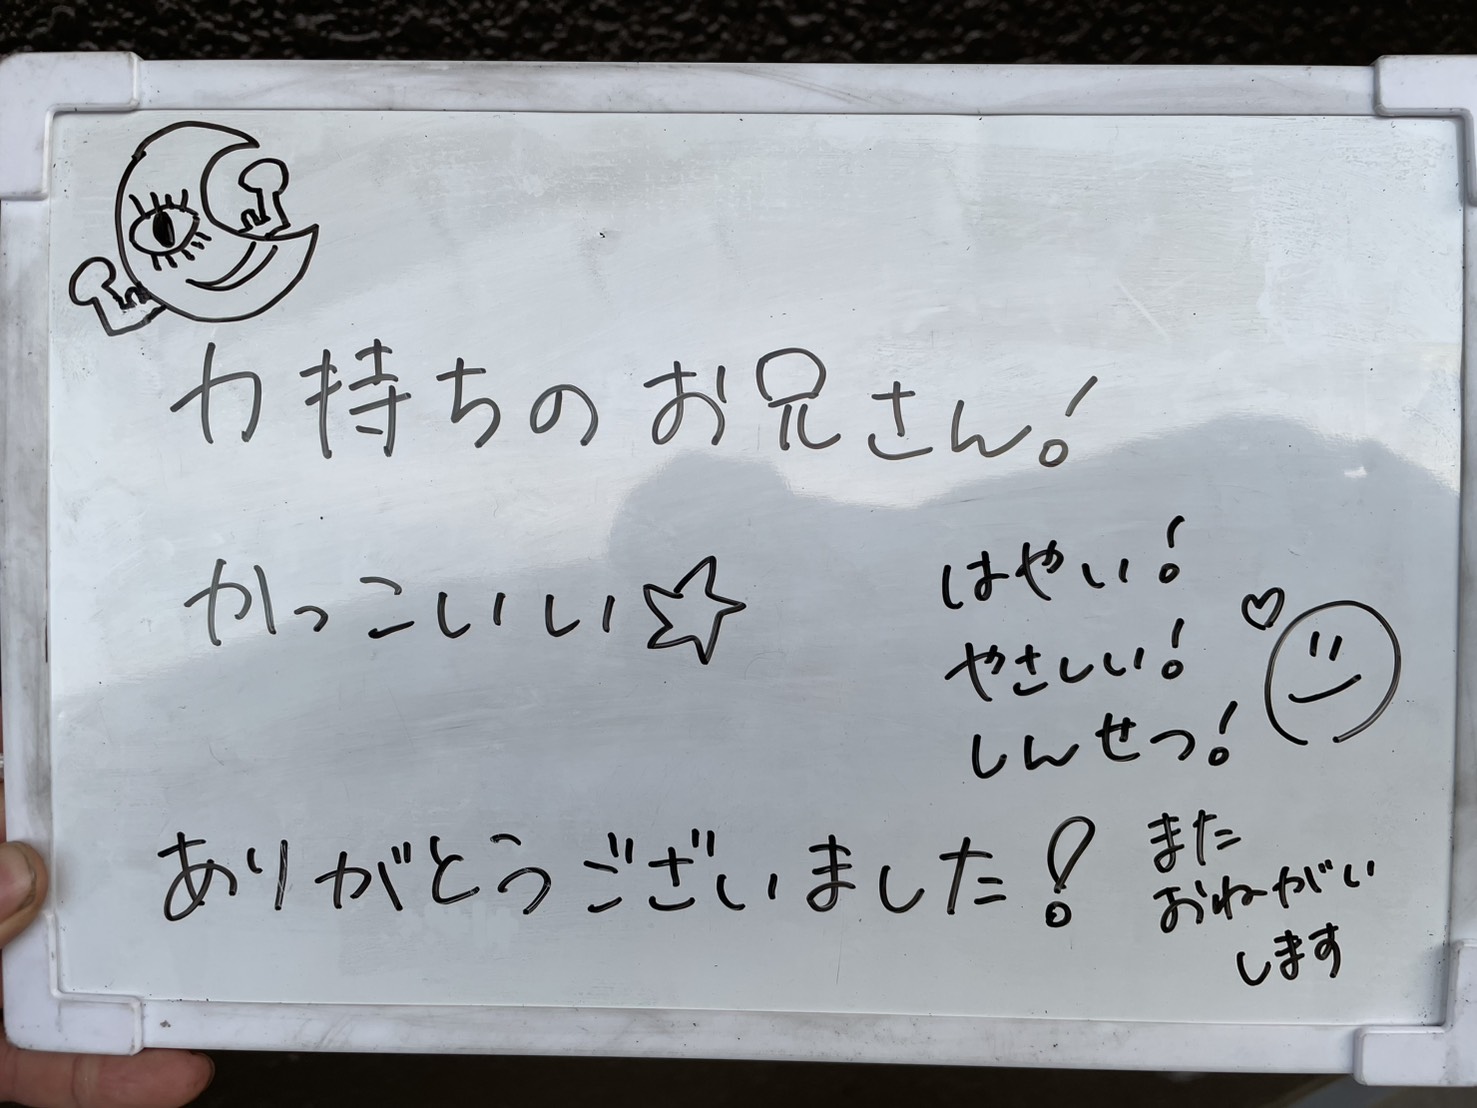 力持ちのお兄さん!
かっこいい☆
はやい!
やさしい!
しんせつ!
ありがとうございました!
また
おねがい
します